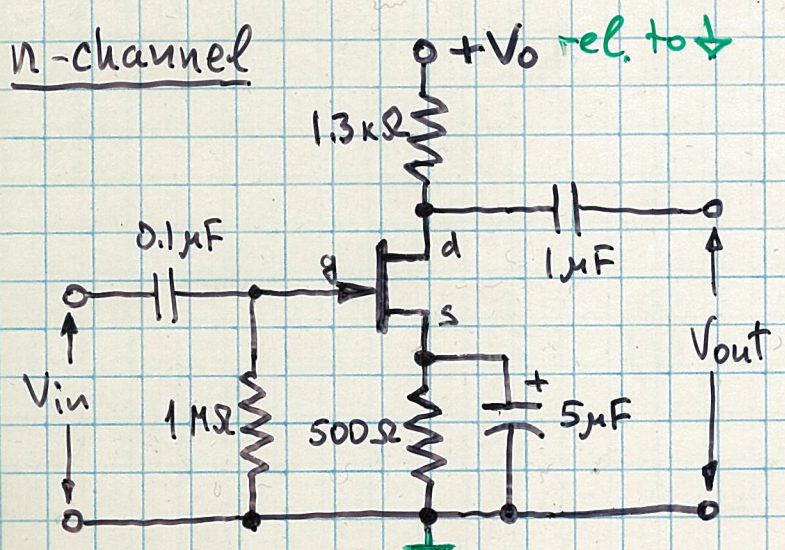 n-channel
+Vo rel. to
1.3kΩ
0.1μF
d
1μF
g
s
Vin
1MΩ
500Ω
+
5μF
Vout